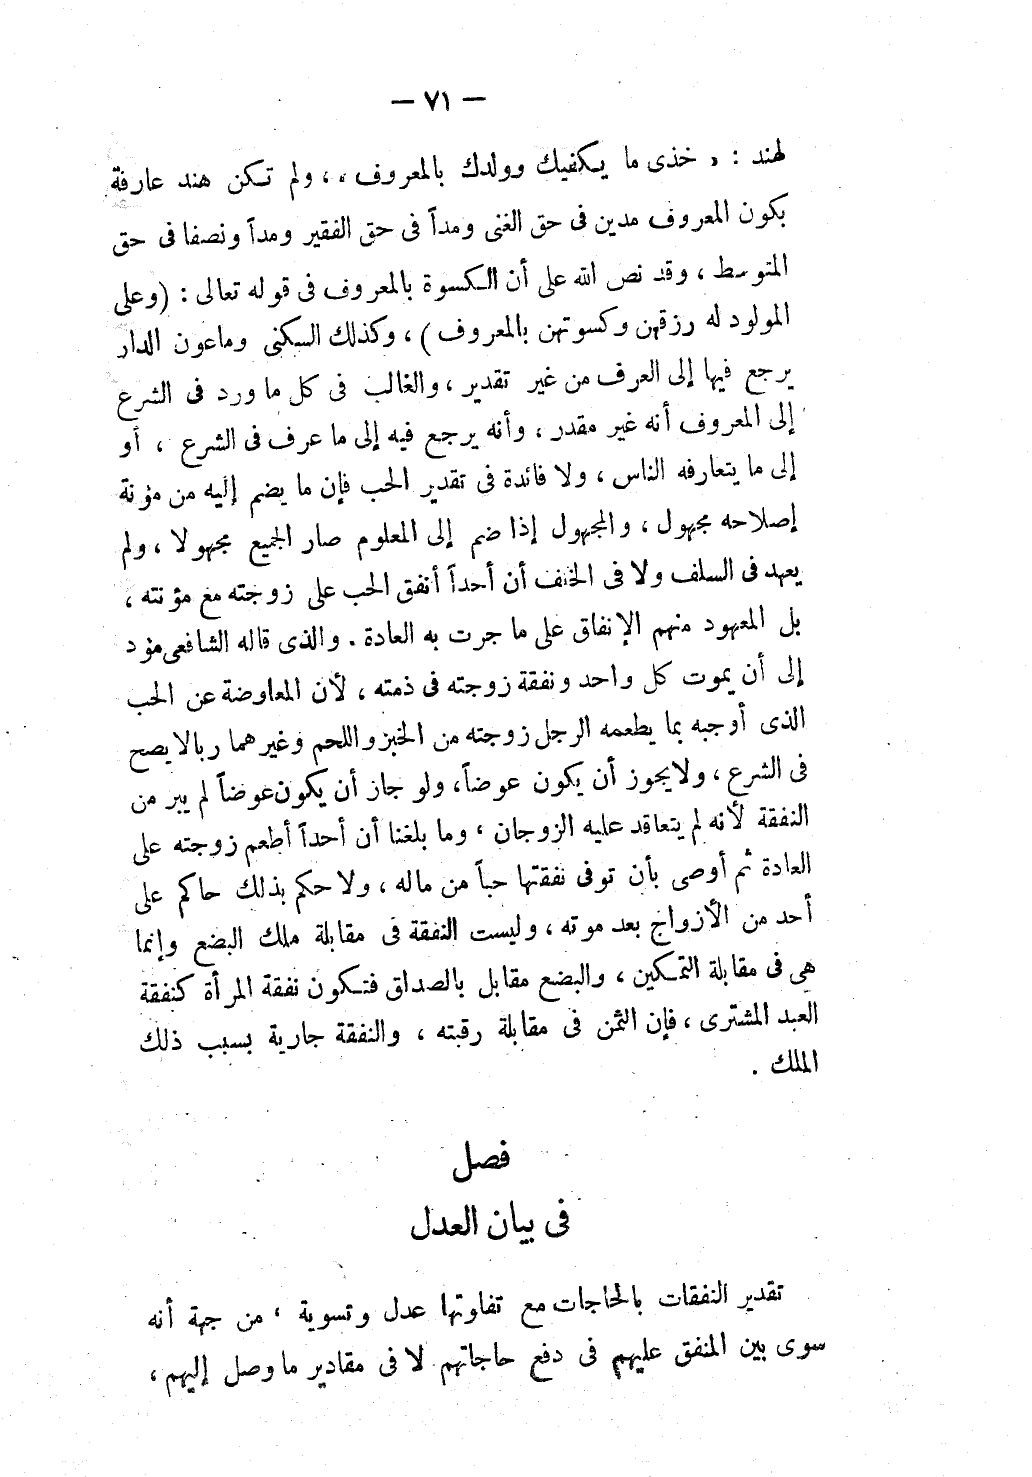 — ٧١ —
لهند : « خذى ما يكفيك وولدك بالمعروف » ، ولم تكن هند عارفة
بكون المعروف مدين فى حق الغنى ومداً فى حق الفقير ومداً ونصفا فى حق
المتوسط ، وقد نص الله على أن الكسوة بالمعروف فى قوله تعالى : (وعلى
المولود له رزقهن وكسوتهن بالمعروف) ، وكذلك السكنى وماعون الدار
يرجع فيها إلى العرف من غير تقدير ، والغالب فى كل ما ورد فى الشرع
إلى المعروف أنه غير مقدر ، وأنه يرجع فيه إلى ما عرف فى الشرع ، أو
إلى ما يتعارفه الناس ، ولا فائدة فى تقدير الحب فإن ما يضم إليه من مؤنة
إصلاحه مجهول ، والمجهول إذا ضم إلى المعلوم صار الجميع مجهولا ، ولم
يعهد فى السلف ولا فى الخلف أن أحداً أنفق الحب على زوجته مع مؤنته ،
بل المعهود منهم الإنفاق على ما جرت به العادة . والذى قاله الشافعى مؤد
إلى أن يموت كل واحد ونفقة زوجته فى ذمته ، لأن المعاوضة عن الحب
الذى أوجبه بما يطعمه الرجل زوجته من الخبز واللحم وغيرهما ربا لا يصح
فى الشرع ، ولا يجوز أن يكون عوضاً ، ولو جاز أن يكون عوضاً لم يبر من
النفقة لأنه لم يتعاقد عليه الزوجان ، وما بلغنا أن أحداً أطعم زوجته على
العادة ثم أوصى بأن توفى نفقتها حباً من ماله ، ولا حكم بذلك حاكم على
أحد من الأزواج بعد موته ، وليست النفقة فى مقابلة ملك البضع وإنما
هى فى مقابلة التمكين ، والبضع مقابل بالصداق فتكون نفقة المرأة كنفقة
العبد المشترى ، فإن الثمن فى مقابلة رقبته ، والنفقة جارية بسبب ذلك
الملك .
فصل
فى بيان العدل
تقدير النفقات بالحاجات مع تفاوتها عدل وتسوية ، من جهة أنه
سوى بين المنفق عليهم فى دفع حاجاتهم لا فى مقادير ما وصل إليهم ،